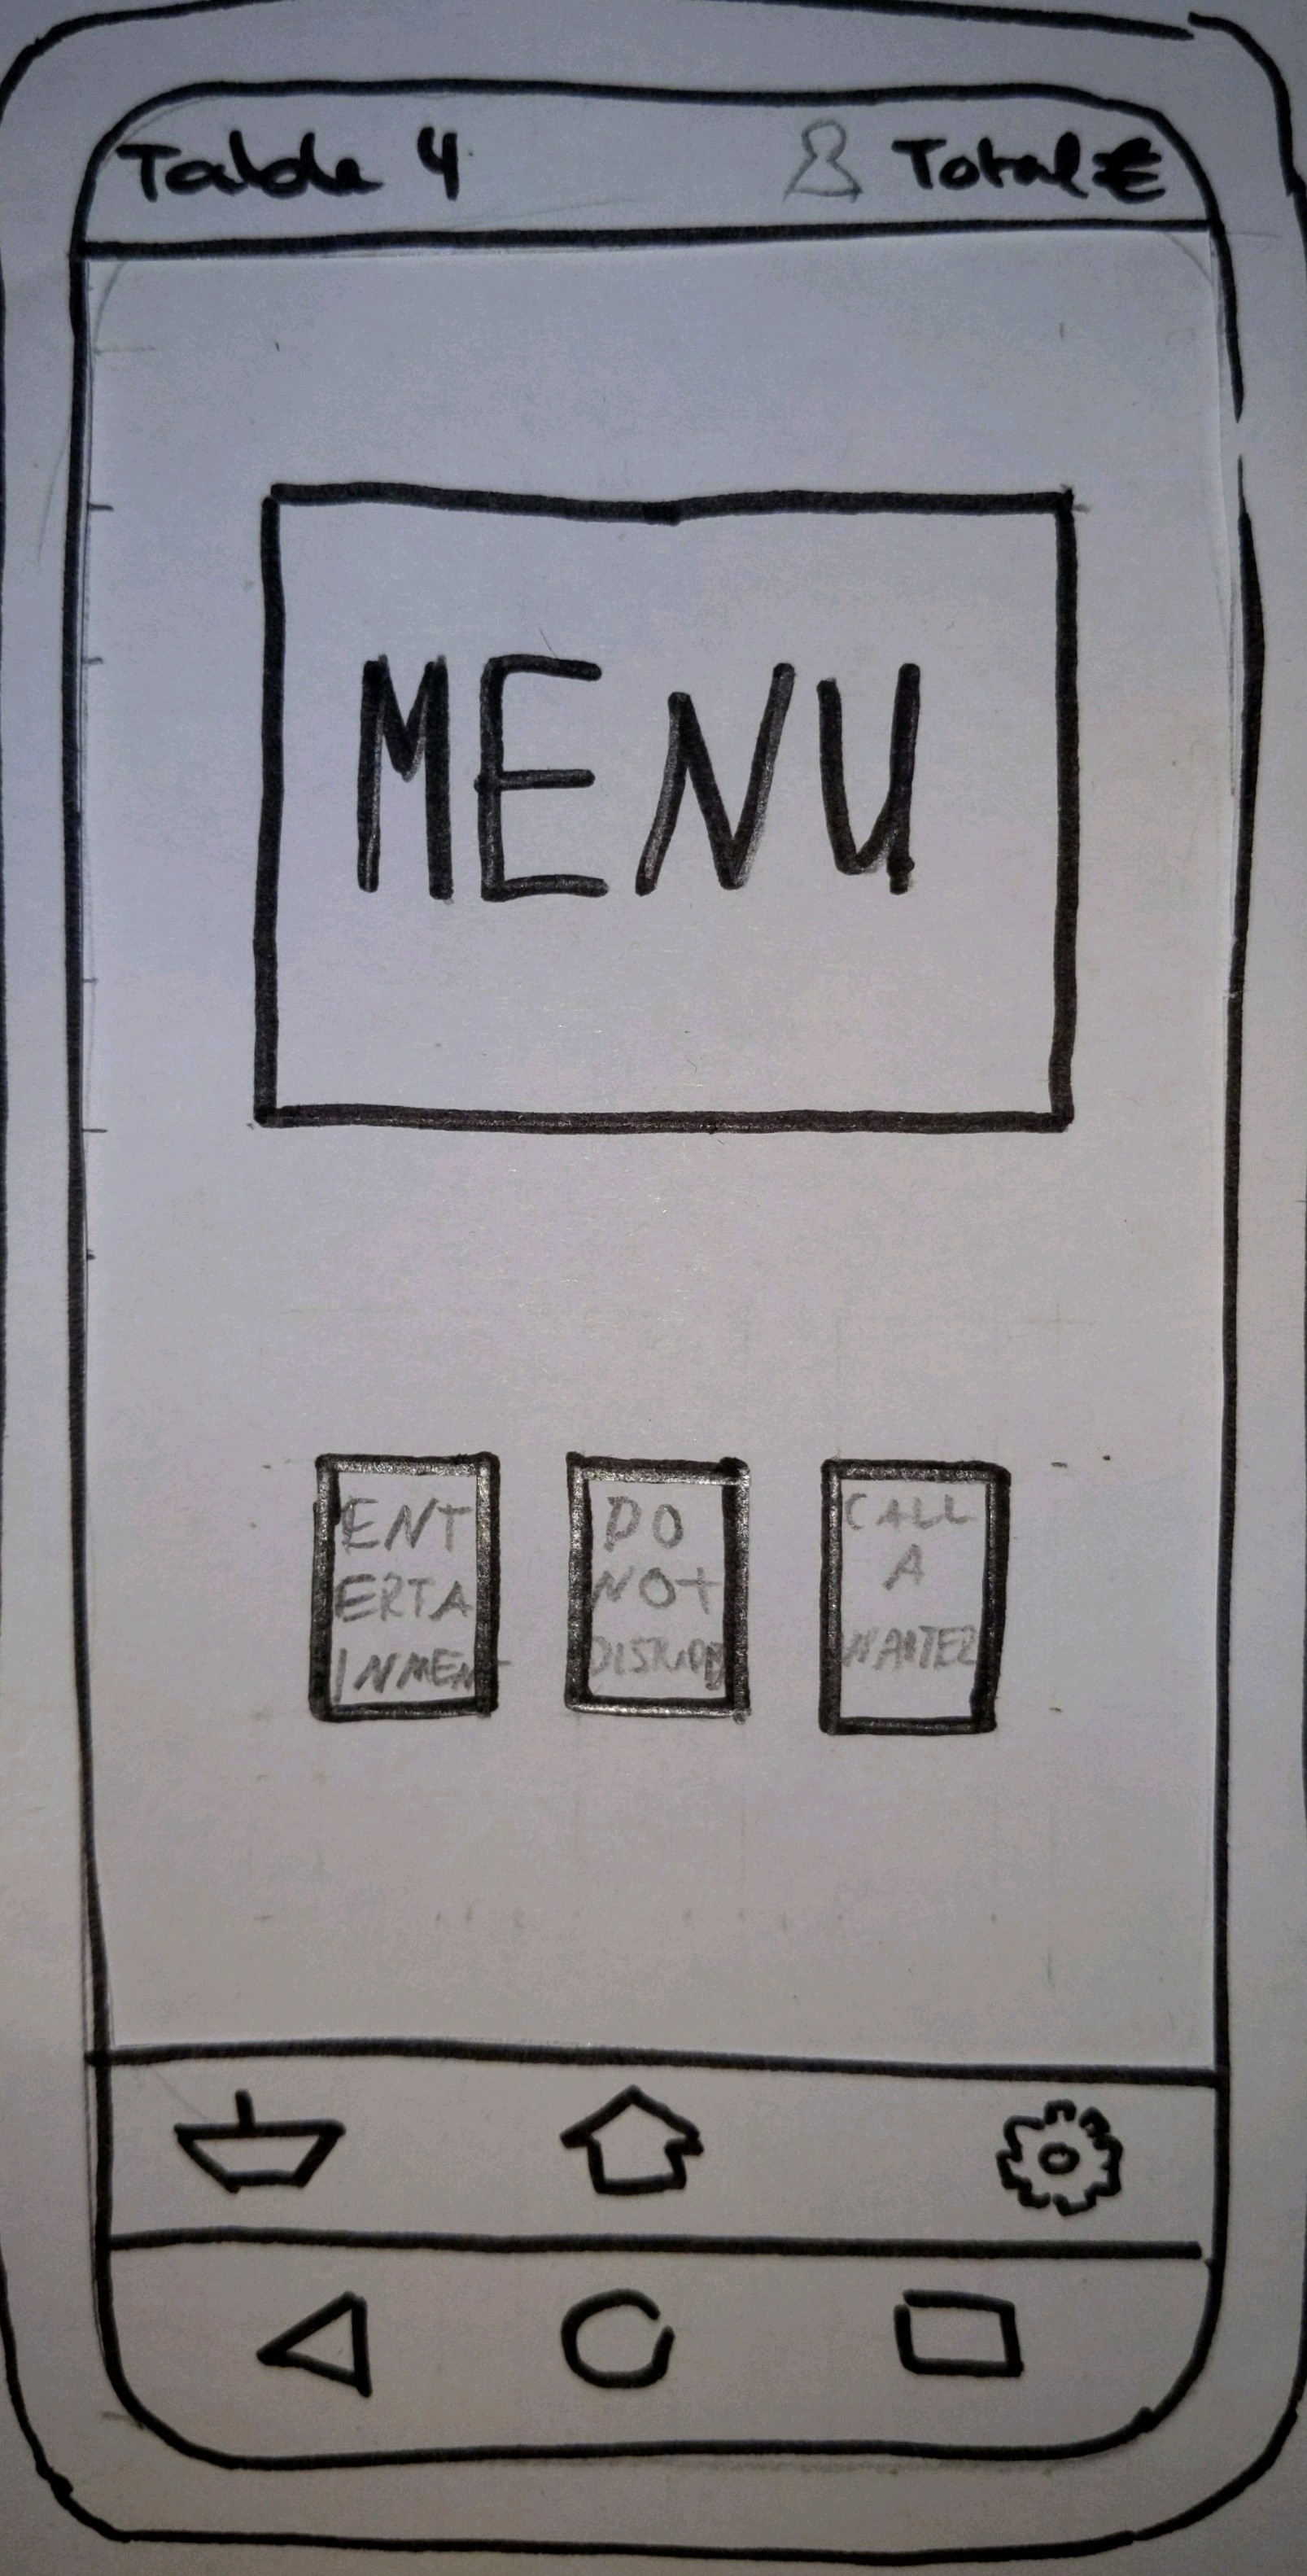 Table 4 Total €
MENU
ENT
ERTA
INMENT
DO
NOT
CALL
A
WAITER